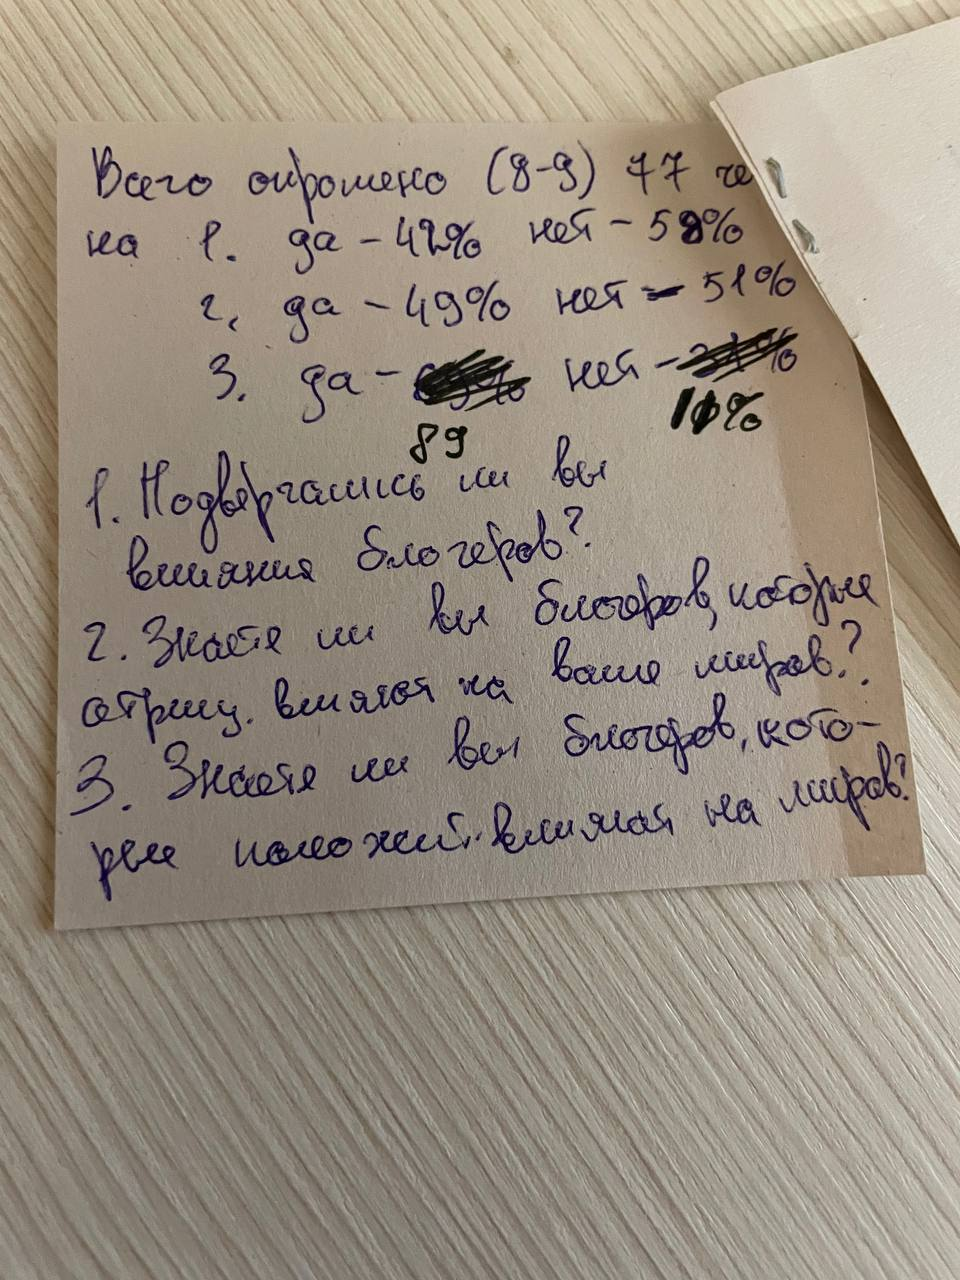 Всего опрошено (8-9) 77 че
на 1. да - 42% нет - 58%
2. да - 49% нет - 51%
3. да - нет -
89 11%
1. Подвергались ли вы
влияния блогеров?
2. Знаете ли вы блогеров, которые
отриц. влияют на ваше миров.?
3. Знаете ли вы блогеров, кото-
рые положит. влияют на миров?